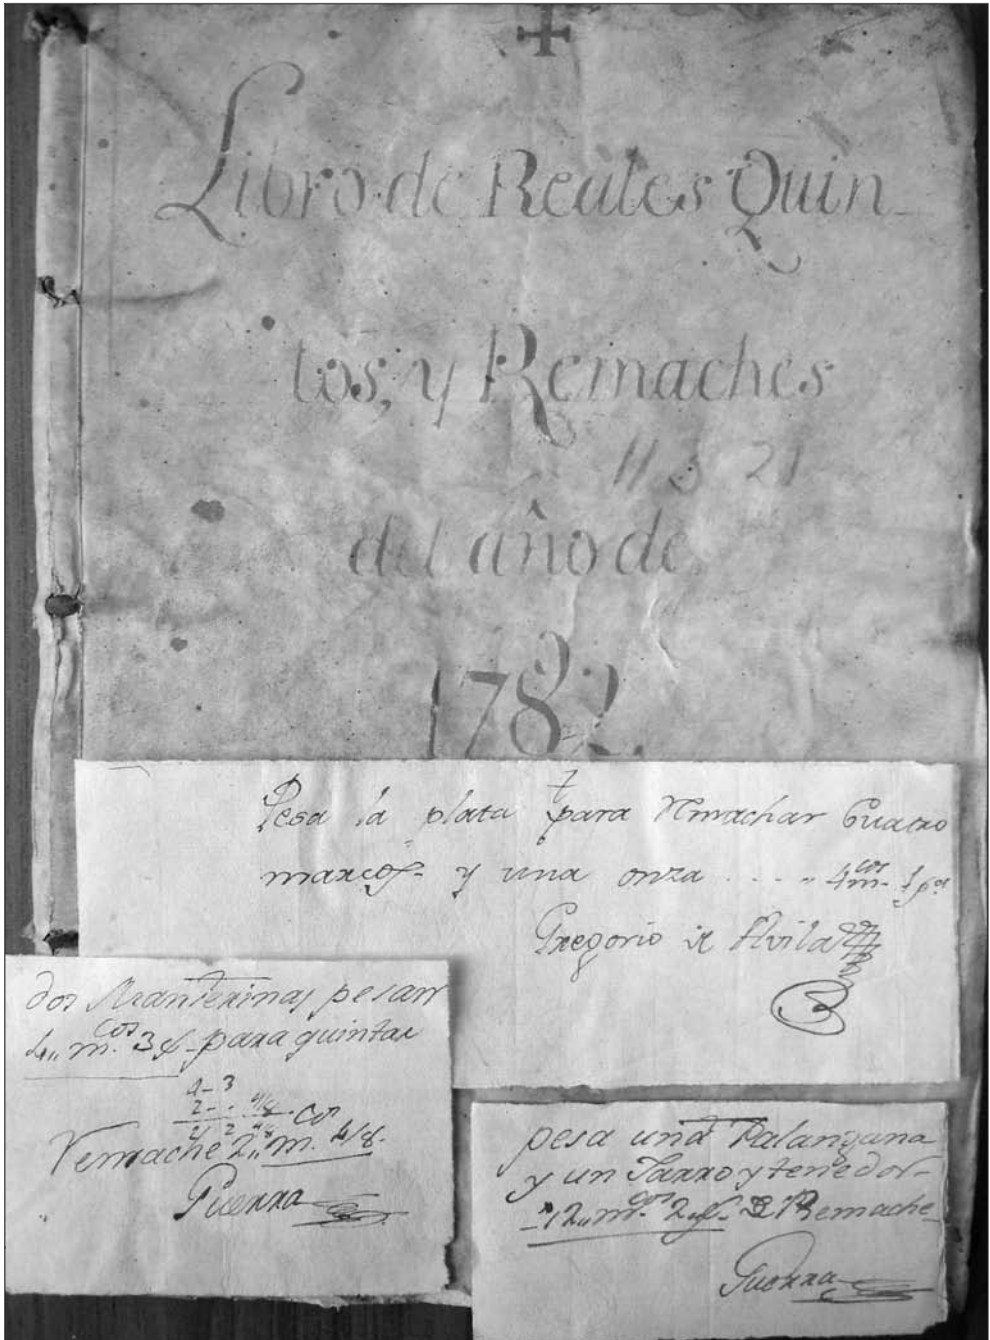 Libro de Reales Quin
tos, y Remaches
11 3 21
del año de
1782.
Pesa la plata para Remachar Cuatro
marcos y una onza . . . . 4 m.cos 1
Gregorio de Avila
dos Manserinas pesan
4,, m.cos 3 para quintar
4-3
2-. 4/8
Remache 2,, m.cos 4/8.
Guerra
pesa una Palangana
y un Jarro y tenedor
12,, m.cos 2 De Remache
Guerra